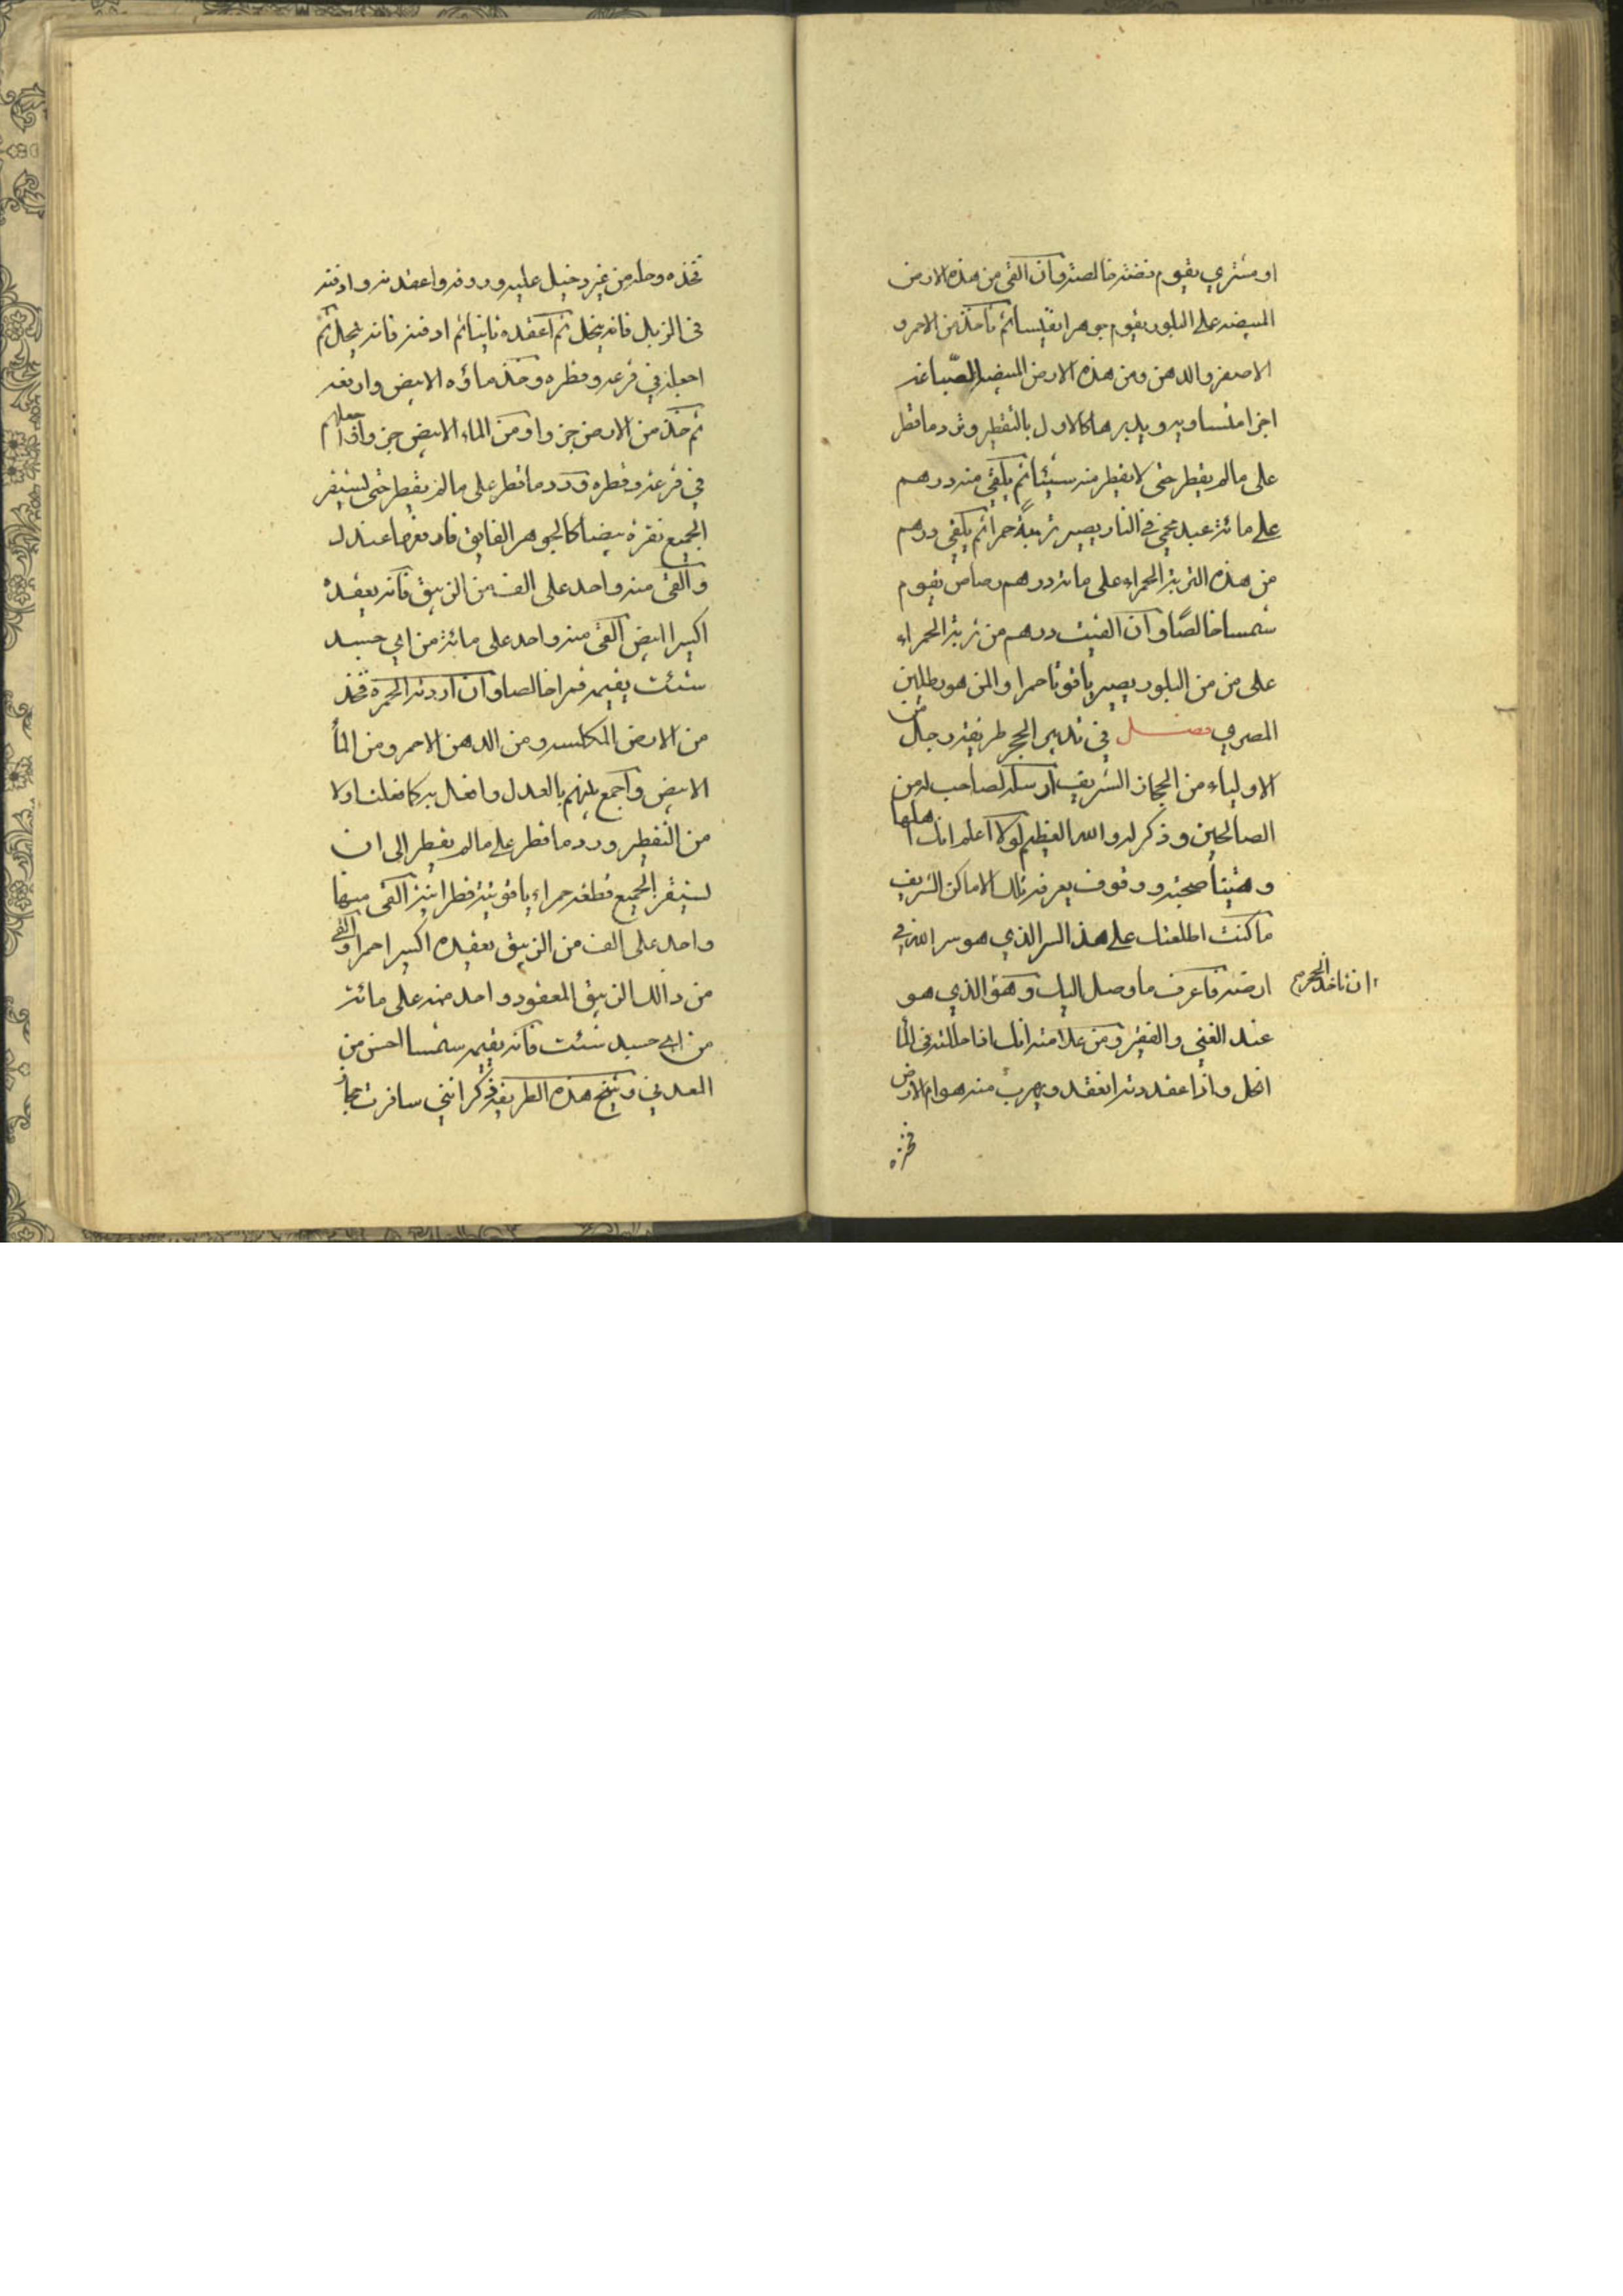 او مشتري يقوم فضة خالصة وان القى من هذه الارض
المبيضه على البلور يقوم جوهرا نفيسا ثم تأخذ من الاحمر و
الاصفر والدهن ومن هذه الارض المبيضه الصباغه
اجزا متساويه ويدبرها كالاول بالتقطير وترد ما قطر
على مالم يقطر حتى لا يقطر منه شيئا ثم يلقى منه درهم
على مائة عبد محمي في النار يصير تربة حمرا ثم يلقى درهم
من هذه التربة الحمراء على مائة درهم رصاص يقوم
شمسا خالصًا وان القيت درهم من تربة الحمراء
على من من البلور يصير ياقوتا حمرا والمن هو رطلين
المصري فصل في تدبير الحجر طريقة رجال من
الاولياء من الحجاز الشريف ارسله لصاحب له من
الصالحين وذكر له والله العظيم لولا اعلم انك اهلها
وبيننا صحبة ووقوف بعرفه وتلك الاماكن الشريف
ما كنت اطلعتك على هذ السر الذي هو سر الله في
ارضه فاعرف ما وصل اليك وهو الذي هو
ان تاخذ الحجر
عند الغني والفقير ومن علامته انك اذا حللته في الما
انحل واذا عقدته انعقد ويهرب منه هوام الارض
فخذه
فخذه وحله من غير دخيل عليه وروقه واعقده وادفنه
في الزبل فانه ينحل ثم اعقده ثانيا ثم ادفنه فانه ينحل ثم
اجعله في قرعه وقطره وخذ ماؤه الابيض وارفعه
ثم خذ من الارض جزوا ومن الماء الابيض جزوا واجعلهم
في قرعة وقطره ورد ما قطر على مالم يقطر حتى يستقر
الجميع نقرة بيضا كالجوهر الفايق فارفعها عندك
والقى منه واحد على الف من الزيبق فانه يعقده
اكسيرا ابيض القى منه واحد على مائة من اي جسد
شئت يقيمه قمرا خالصا وان اردت الحمرة فخذ
من الارض المكلسه ومن الدهن الاحمر ومن الما
الابيض واجمع بينهم بالعدل وافعل به كما فعلت اولا
من التقطير ورد ما قطر على مالم يقطر الى ان
يستقر الجميع قطعه حمراء ياقوتية القى منها
واحد على الف من الزيبق يعقده اكسيرا حمرا والقى
من دالك الزيبق المعقود واحد منه على مائة
من اي جسد شئت فانه يقيمه شمسا احسن من
المعدني وشيخ هذه الطريقة ذكر انني سافرت